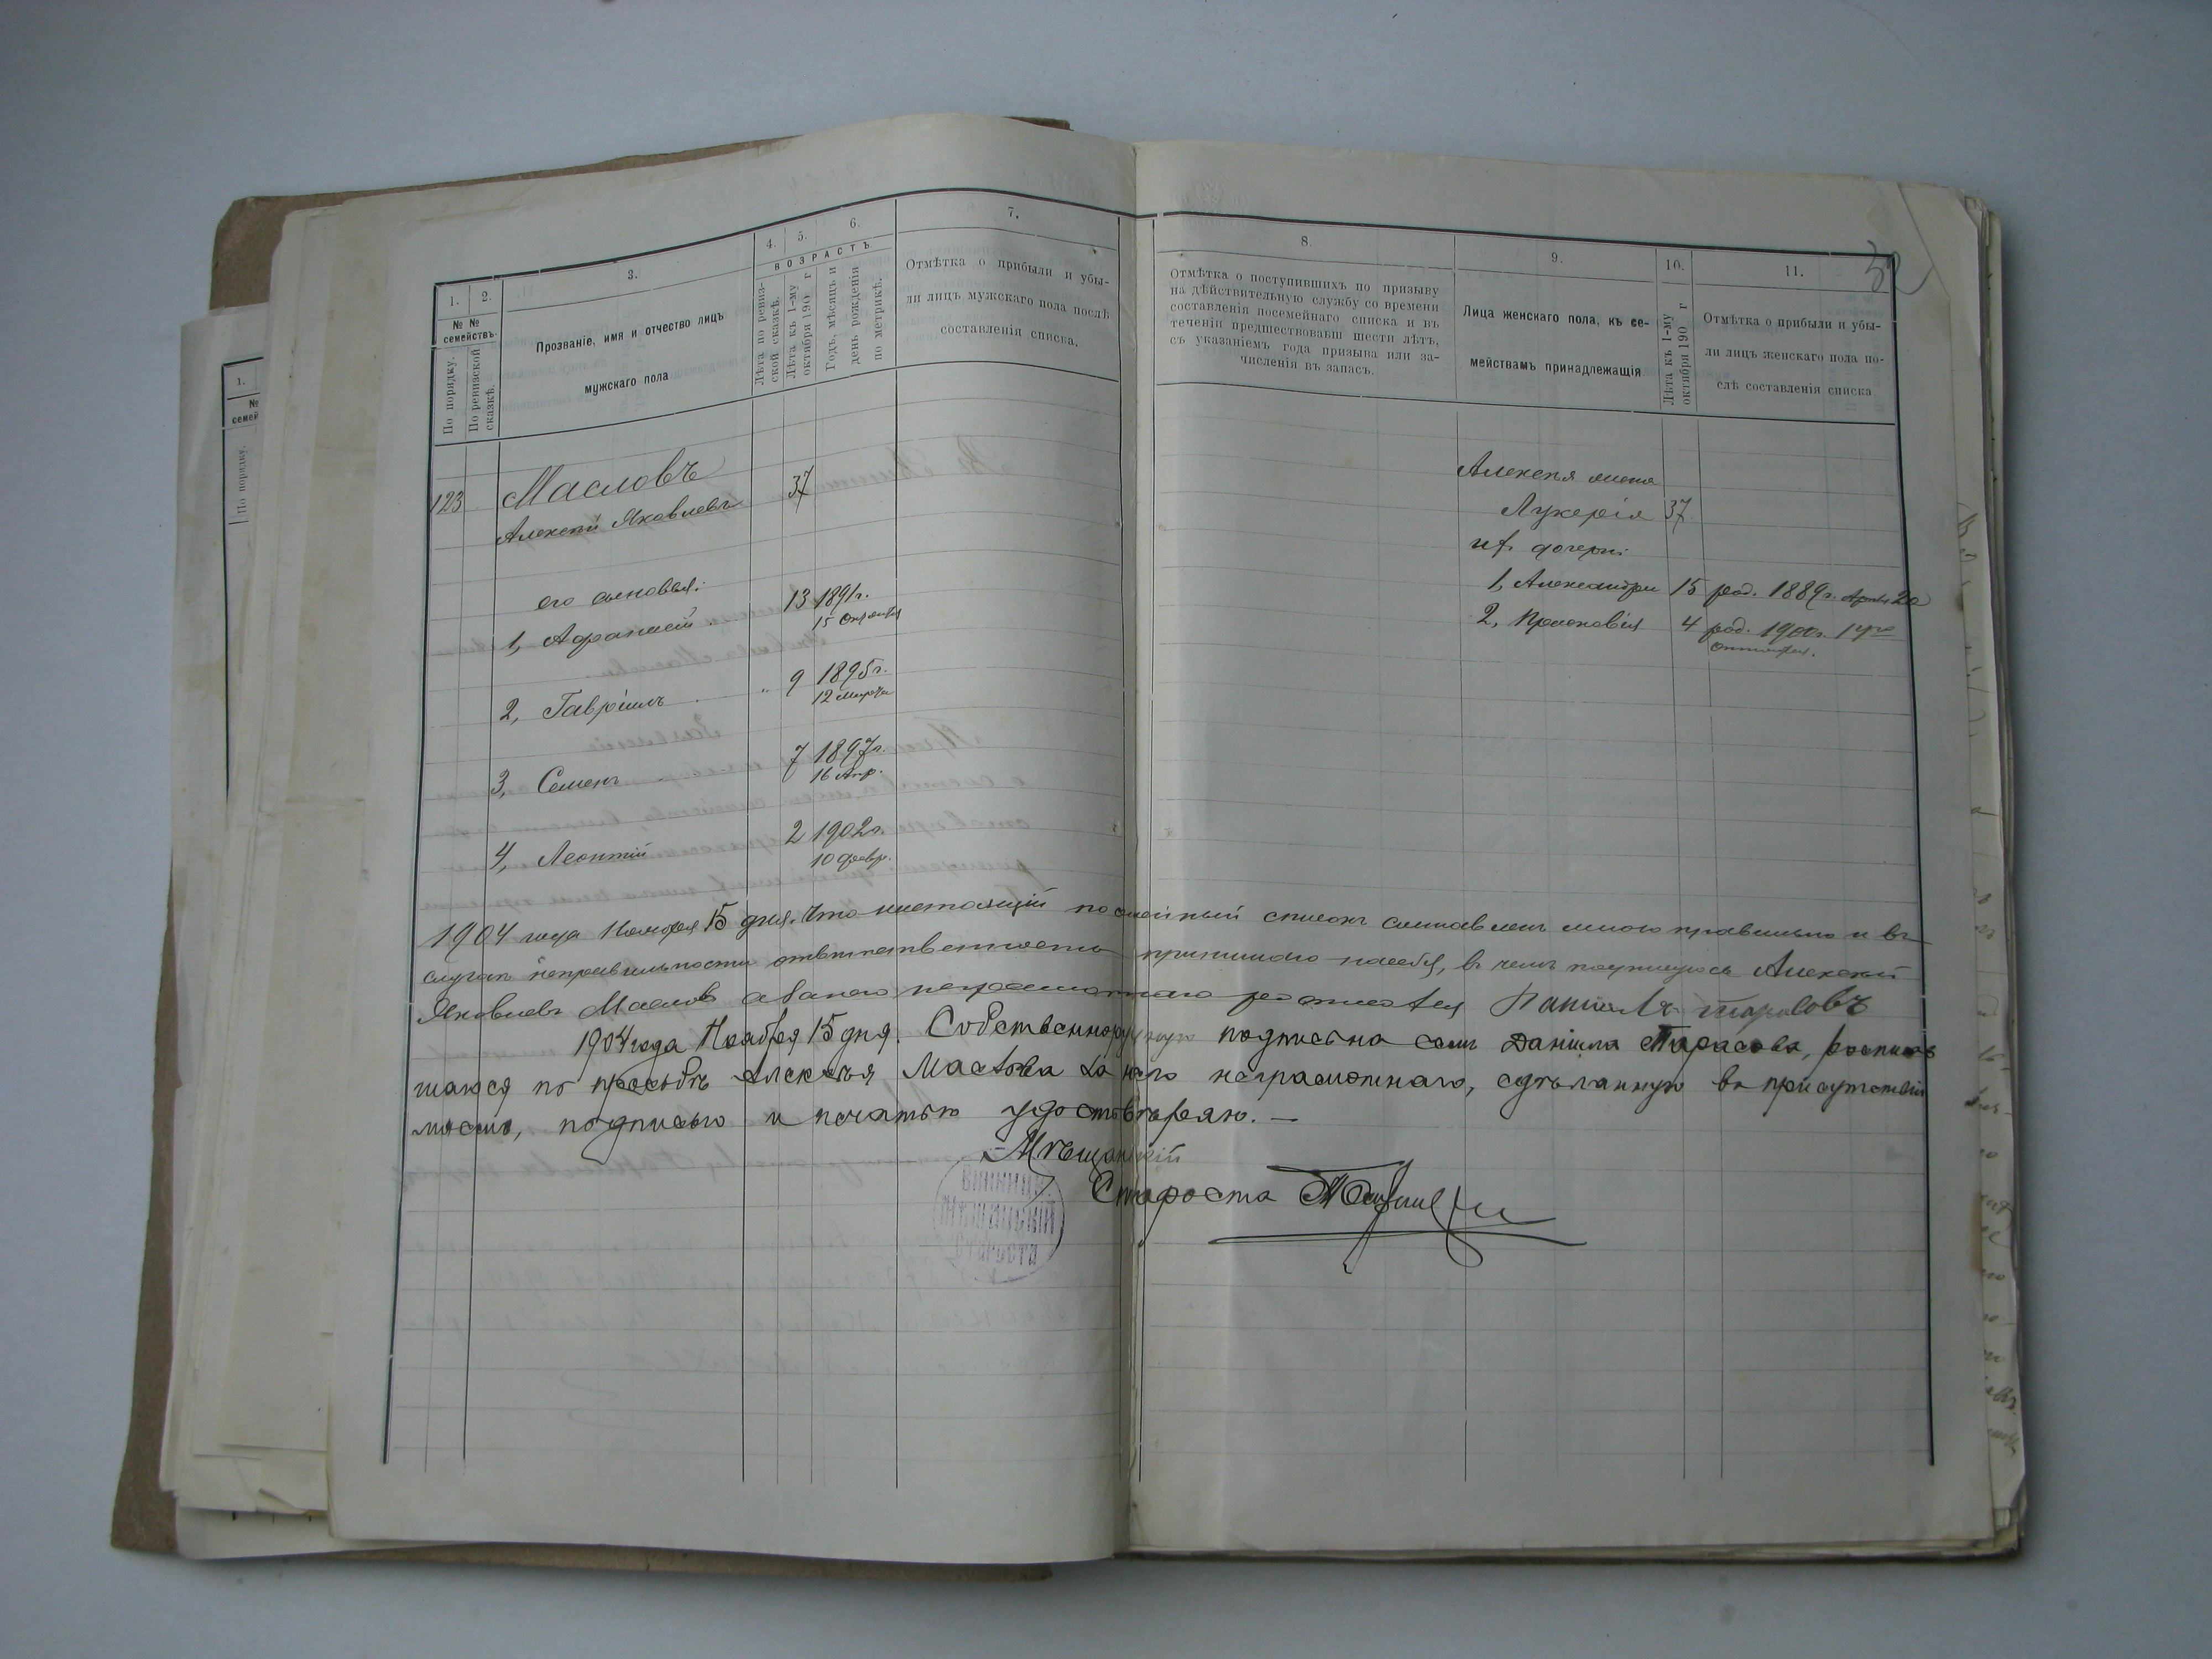 1. 2. 3. 4. 5. 6. 7.
№ № семействъ.
По порядку.
По ревизской сказкѣ.
Прозваніе, имя и отчество лицъ
мужскаго пола
ВОЗРАСТЪ
Лѣта по ревиз-
ской сказкѣ.
Лѣта къ 1-му
октября 190 г
Годъ, мѣсяцъ и
день рожденія
по метрикѣ.
Отмѣтка о прибыли и убы-
ли лицъ мужскаго пола послѣ
составленія списка.
8. 9. 10. 11.
Отмѣтка о поступившихъ по призыву
на дѣйствительную службу со времени
составленія посемейнаго списка и въ
теченіи предшествовавш шести лѣтъ,
съ указаніемъ года призыва или за-
численія въ запасъ.
Лица женскаго пола, къ се-
мействамъ принадлежащія
Лѣта къ 1-му
октября 190 г
Отмѣтка о прибыли и убы-
ли лицъ женскаго пола по-
слѣ составленія списка
123 Масловъ 37
Алексѣй Яковлевъ
его сыновья:
1, Афанасій 13 1891г.
15 Октября
2, Гавріилъ 9 1895г.
12 Марта
3, Семенъ 7 1897г.
16 Апр.
4, Леонтій 2 1902г.
10 Февр.
Алексѣя жена
Лукерія 37
их дочери:
1, Александра 15 род. 1889г. Апрѣля 20
2, Прасковія 4 род. 1900г. 14го
октября.
1904 года Ноября 15 дня. Что настоящій посемейный списокъ составленъ мною правильно и въ
случаѣ неправильности отвѣтственность принимаю на себя, въ чемъ подпишуюсь Алексѣй
Яковлевъ Масловъ а за него неграмотнаго росписался Данилъ Тарасовъ
1904 года Ноября 15 дня. Собственноручную подпись на семъ Даніила Тарасова, росписав
шагося по просьбѣ Алексѣя Маслова за него неграмотнаго, сдѣланную въ присутствіи
моемъ, подписью и печатью удостовѣряю. —
Мѣщанскій
Староста
1.
№
семей
По порядку.